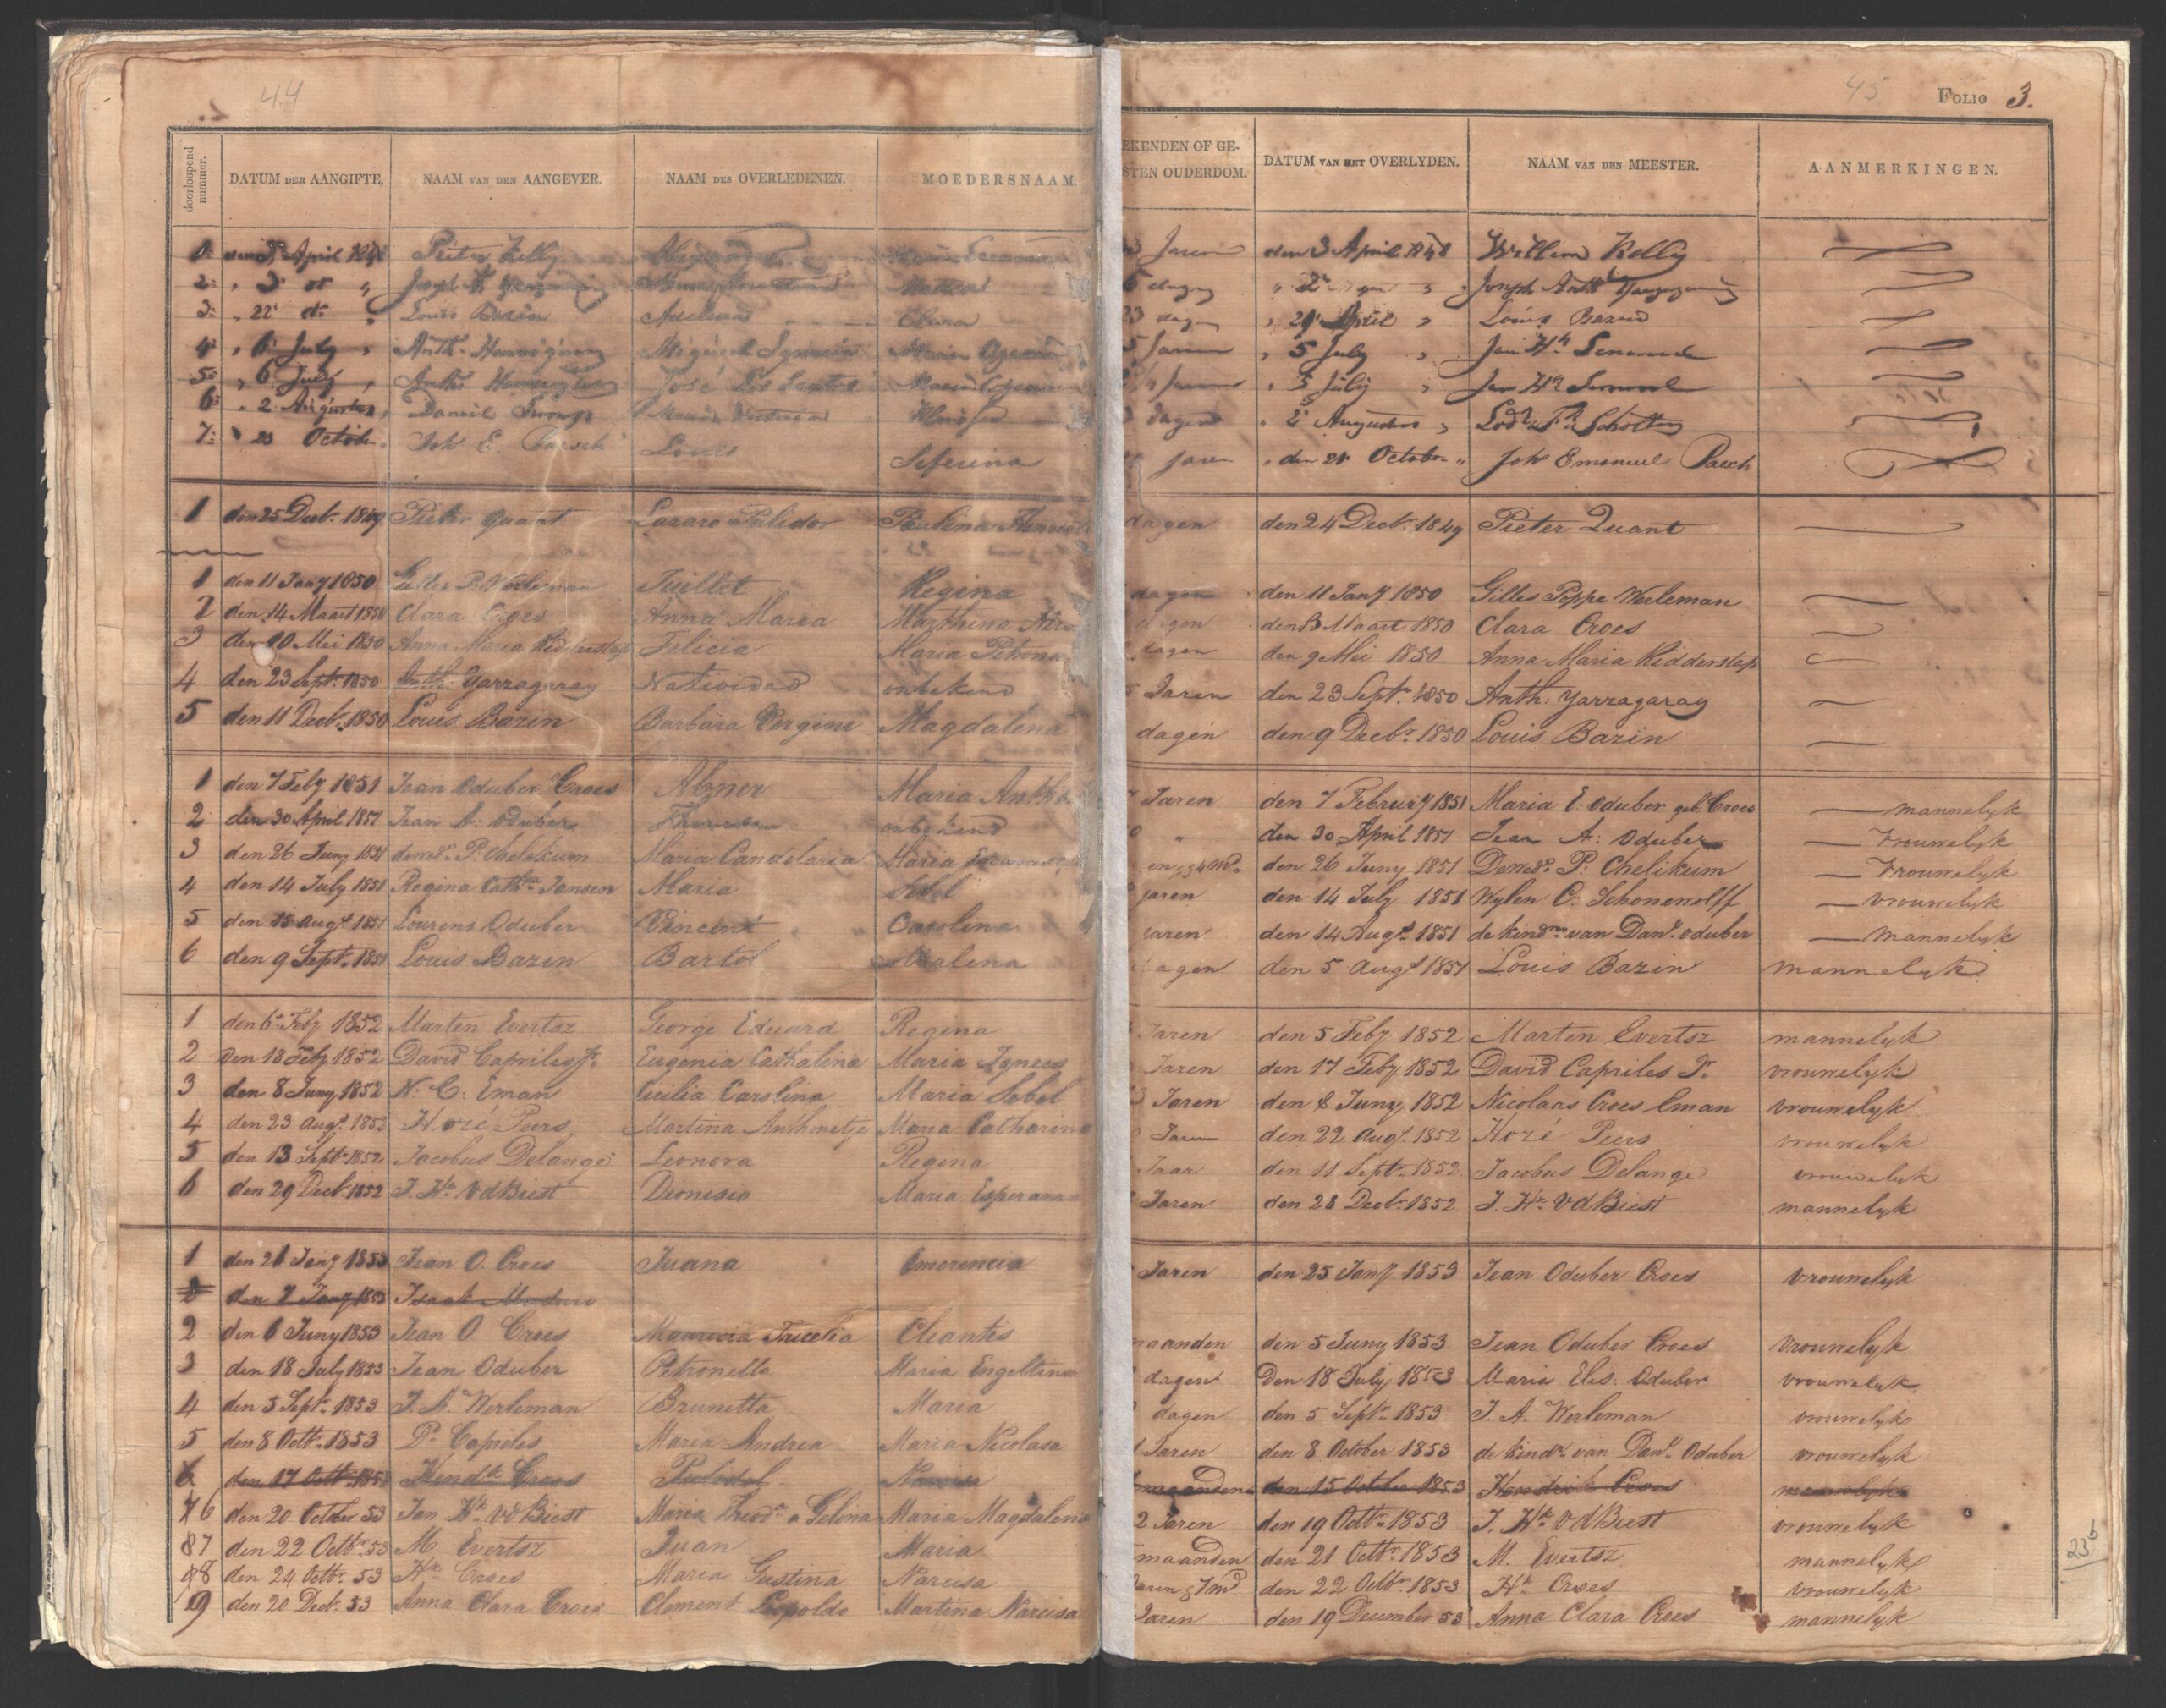 44
45
FOLIO 3.
doorloopend nummer. DATUM DER AANGIFTE. NAAM VAN DEN AANGEVER. NAAM DES OVERLEDENEN. MOEDERSNAAM. EKENDEN OF GE- STEN OUDERDOM. DATUM VAN HET OVERLYDEN. NAAM VAN DEN MEESTER. AANMERKINGEN.
April Pieter Kelly Jaren den 3 April 1848 Willem Kelly
2 3 do " dagen " 2
3 " 22 do " Louis Bazin Clara 23 dagen April " Louis Bazin
4 " 6 July " Anth. Jaren " 5 July " Jan Hk
5 " 6 July " José Los Santos " 5 July " Jan Hk
6 " 2 Augustus Daniel dagen " 2 Augustus " Scholten
7 " 23 October Joh E. Paesch Louis Seferina Jaren " den 21 October " Joh Emanuel Paesch
1 den 25 Decbr. 1849 Pieter Quant Lazaro Polidor Paulina dagen den 24 Decbr. 1849 Pieter Quant
1 den 11 Jany 1850 Gilles P. Werleman Juillet Regina dagen den 11 Jany 1850 Gilles Poppe Werleman
2 den 14 Maart 1850 Clara Croes Anna Maria Marthina dagen den 13 Maart 1850 Clara Croes
3 den 10 Mei 1850 Anna Maria Kidderstap Felicia Maria Petrona dagen den 9 Mei 1850 Anna Maria Kidderstap
4 den 23 Sept. 1850 Anth: Yarzagaray Natividad onbekend Jaren den 23 Septr. 1850 Anth: Yarzagaray
5 den 11 Decbr. 1850 Louis Bazin Barbara Vergini Magdalena dagen den 9 Decbr. 1850 Louis Bazin
1 den 7 Feby 1851 Jean Oduber Croes Abner Maria Antho Jaren den 7 Februry 1851 Maria E: Oduber geb. Croes mannelyk
2 den 30 April 1851 Jean A: Oduber onbekend " den 30 April 1851 Jean A: Oduber vrouwelyk
3 den 26 Juny 1851 P. Chelikum Maria Candelaria Maria en 4 md. den 26 Juny 1851 P: Chelikum vrouwelyk
4 den 14 July 1851 Regina Cathna Jansen Maria Sebel jaren den 14 July 1851 Wylen C: Schonewolff vrouwelyk
5 den 15 Augt 1851 Lourens Oduber Vincent Carolina jaren den 14 Augt 1851 de kindren van Danl. Oduber mannelyk
6 den 9 Septr. 1851 Louis Bazin Bartol Malena dagen den 5 Augt 1851 Louis Bazin mannelyk
1 den 6 Feby 1852 Marten Evertsz George Eduard Regina Jaren den 5 Feby 1852 Marten Evertsz mannelyk
2 den 18 Feby 1852 David Capriles Jr. Eugenia Cathalina Maria Ignees Jaren den 17 Feby 1852 David Capriles Jr. vrouwelyk
3 den 8 Juny 1852 N: C: Eman Cicilia Carolina Maria Sebel Jaren den 8 Juny 1852 Nicolaas Croes Eman vrouwelyk
4 den 23 Augt. 1852 Horé Peers Martina Anthonetje Maria Catharina Jaren den 22 Augt. 1852 Horé Peers vrouwelyk
5 den 13 Sept. 1852 Jacobus Delange Leonora Regina Jaar den 11 Septr. 1852 Jacobus Delange vrouwelyk
6 den 29 Decbr. 1852 J. Hk. VdBiest Dionisio Maria Esperanza Jaren den 28 Decbr. 1852 J. Hk. VdBiest mannelyk
1 den 26 Jany 1853 Jean O. Croes Juana Emerencia Jaren den 25 Jany 1853 Jean Oduber Croes vrouwelyk
2 den 7 Jany 1853 Isaak Maduro
2 den 6 Juny 1853 Jean O. Croes Mauricia Cleantis maanden den 5 Juny 1853 Jean Oduber Croes vrouwelyk
3 den 18 July 1853 Jean Oduber Petronella Maria Engeltina dagen den 18 July 1853 Maria Elis: Oduber vrouwelyk
4 den 5 Septr. 1853 J. A. Werleman Brunetta Maria dagen den 5 Septr. 1853 J. A. Werleman vrouwelyk
5 den 8 Octbr. 1853 Capriles Maria Andrea Maria Nicolasa Jaren den 8 October 1853 de kindr. van Danl. Oduber vrouwelyk
6 den 17 Octbr. 1853 Hendk. Croes Narcisa maanden den 15 October 1853 Hendrik Croes mannelyk
76 den 20 October 53 Jan Hk. VdBiest Maria Maria Magdalena 2 Jaren den 19 Octbr. 1853 J. Hk. VdBiest vrouwelyk
87 den 22 Octbr. 53 M. Evertsz Juan Maria maanden den 21 Octbr. 1853 M. Evertsz mannelyk
98 den 24 Octbr. 53 Hk. Croes Maria Gustina Narcisa Jaren 7 md den 22 Octbr. 1853 Hk. Croes vrouwelyk
9 den 20 Decbr. 53 Anna Clara Croes Clement Leopoldo Martina Narcisa Jaren den 19 December 53 Anna Clara Croes mannelyk